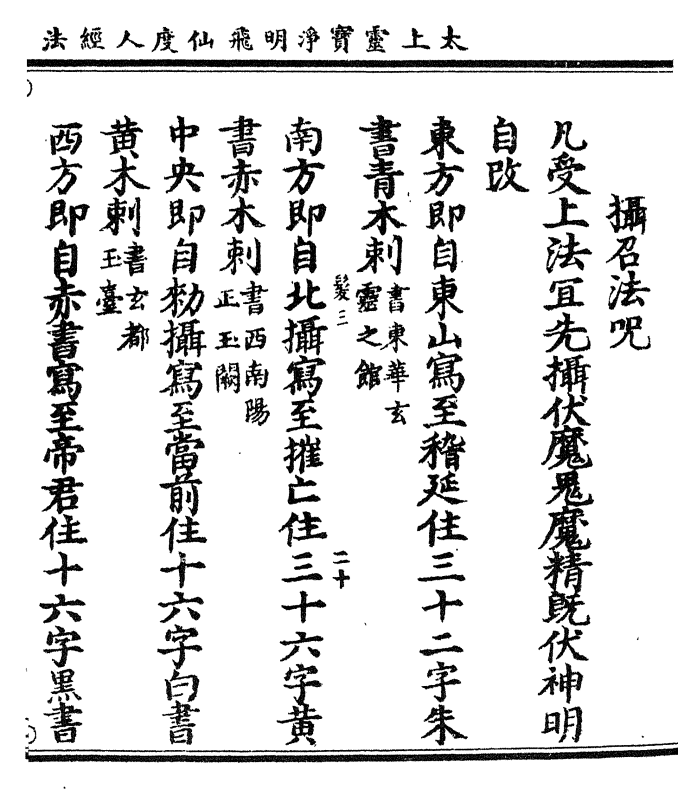 太上靈寶淨明飛仙度人經法
攝召法呪
凡受上法冝先攝伏魔鬼魔精旣伏神明
自改
東方即自東山寫至稽延住三十二字朱
書青木刺書東華玄靈之館
髮三 二十
南方即自北攝寫至摧亡住三十六字黃
書赤木刺書西南陽正玉闕
中央即自勑攝寫至當前住十六字白書
黃木刺書玄都玉臺
西方即自赤書寫至帝君住十六字黑書